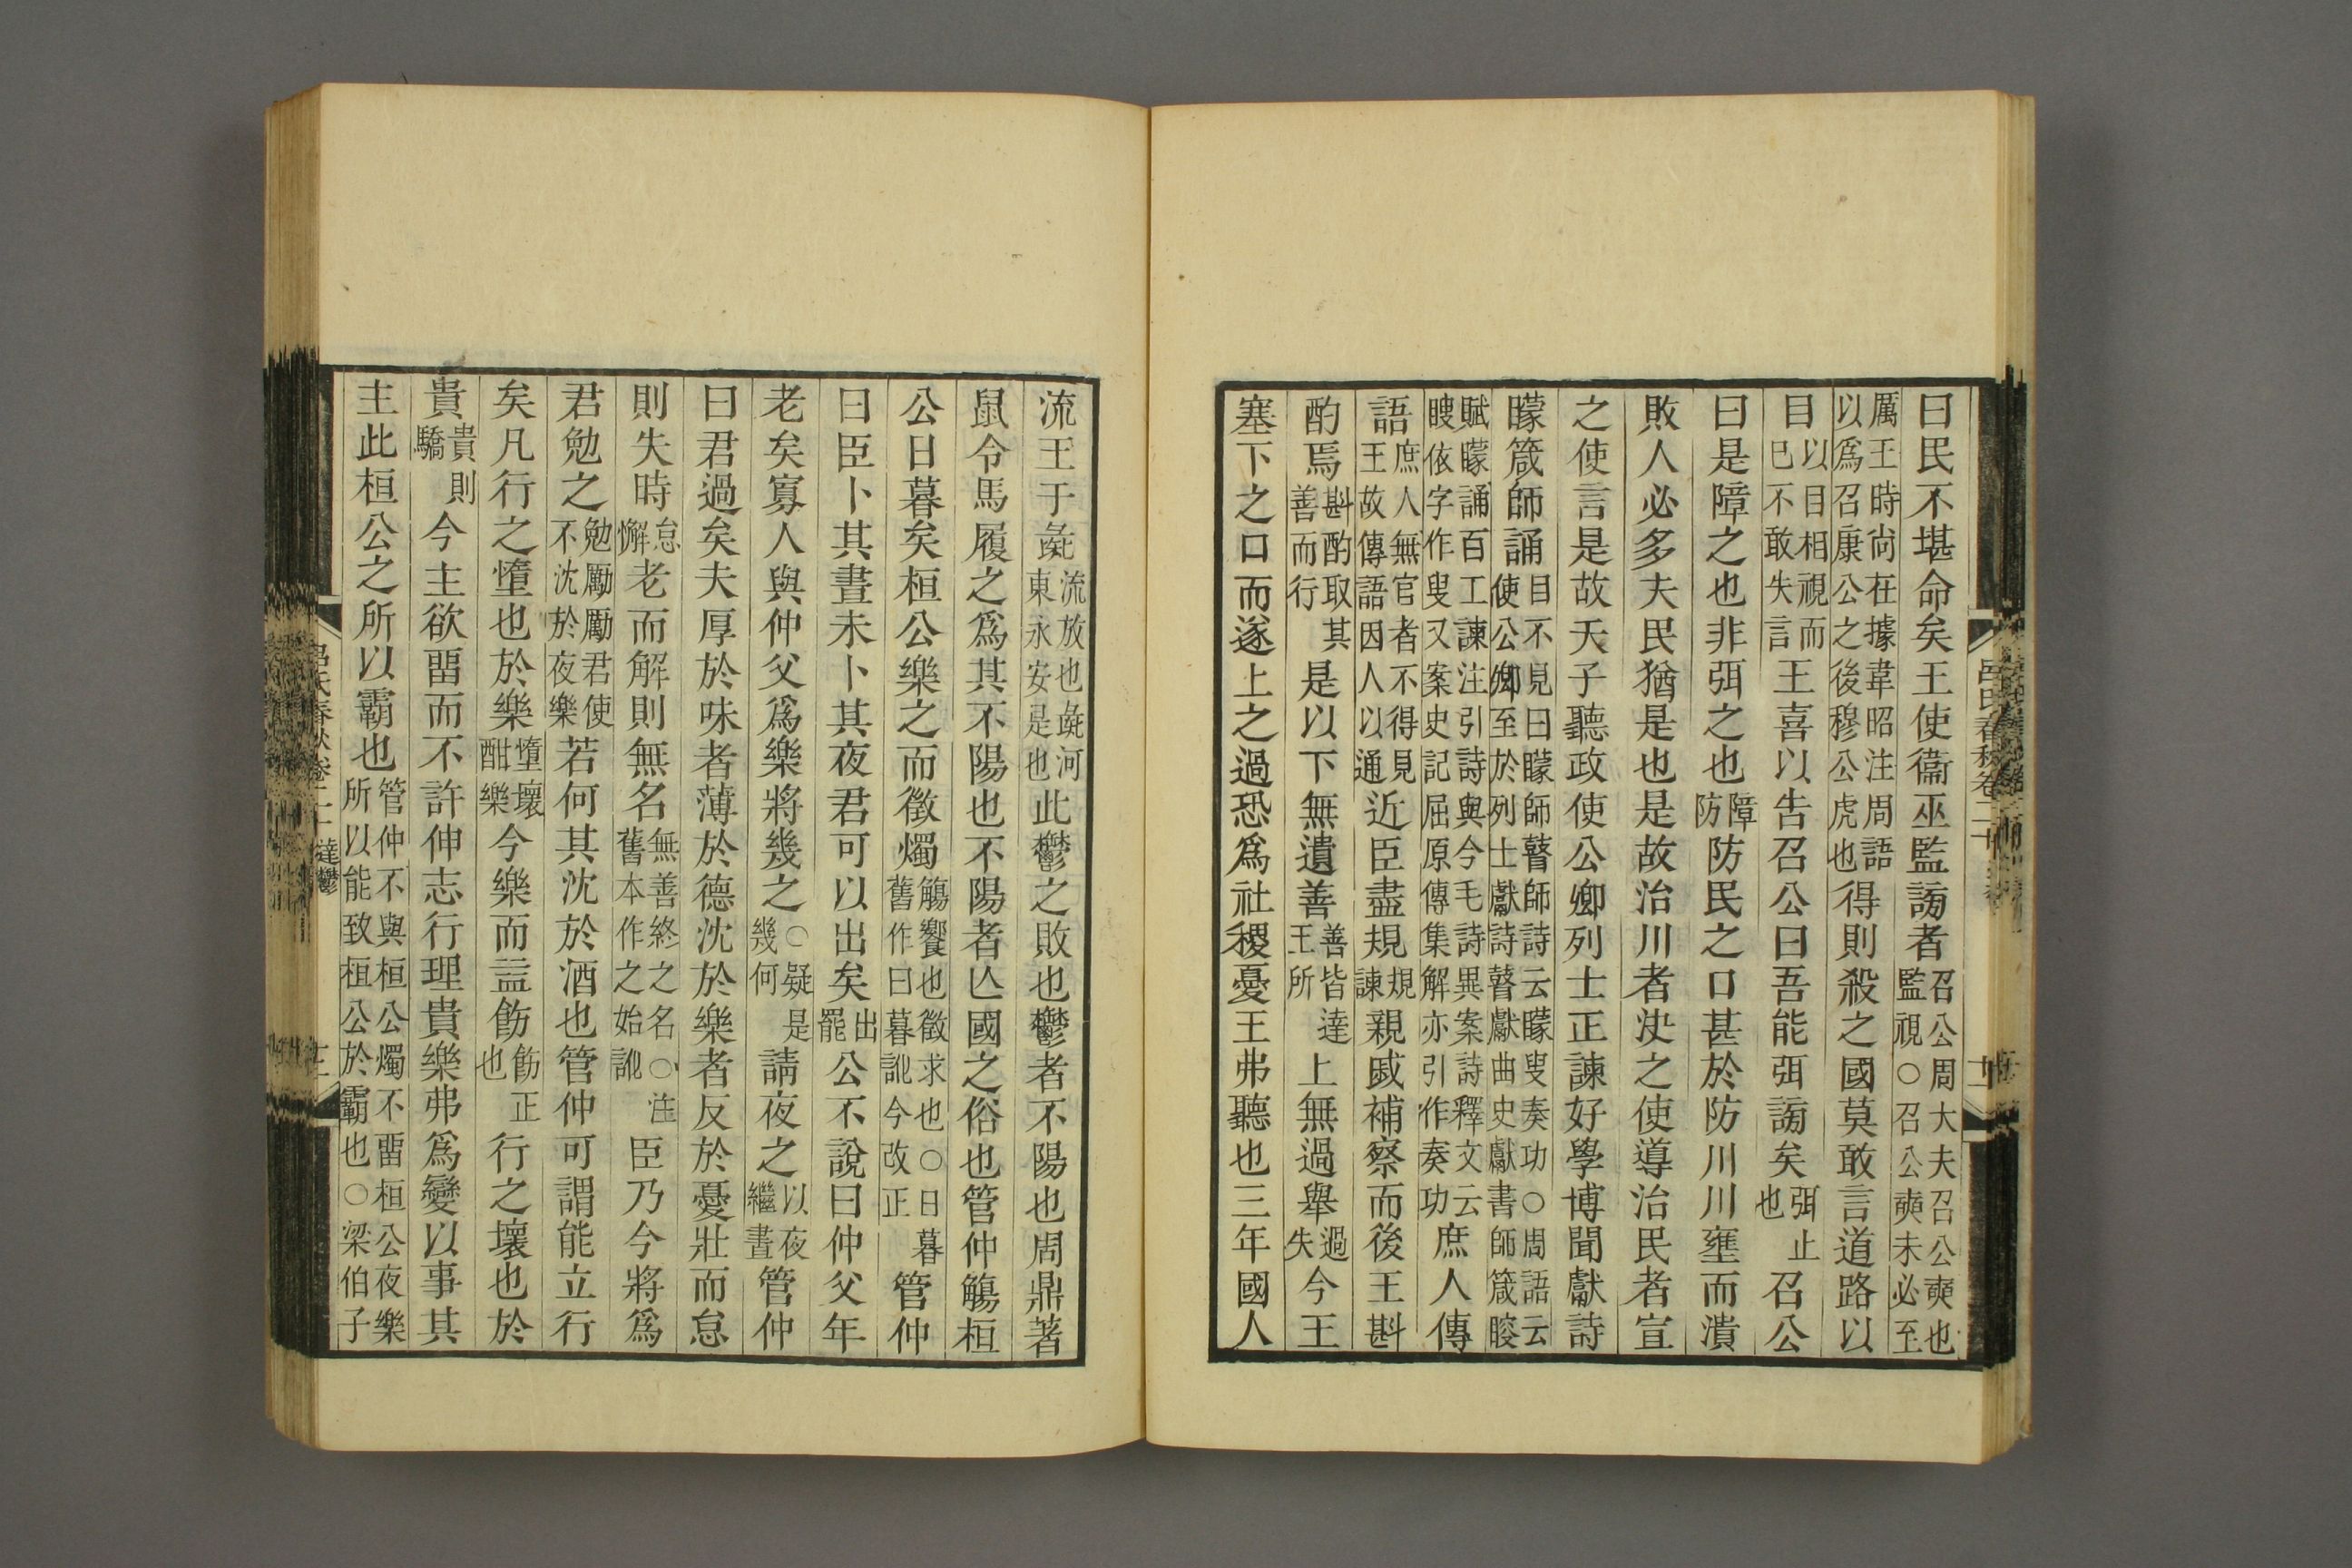 曰民不堪命矣王使衞巫監謗者召公周大夫召公奭也監視○召公奭未必至
厲王時尚在據韋昭注周語以爲召康公之後穆公虎也得則殺之國莫敢言道路以
目以目相視而已不敢失言王喜以告召公曰吾能弭謗矣弭止也召公
曰是障之也非弭之也障防防民之口甚於防川川壅而潰
敗人必多夫民猶是也是故治川者決之使導治民者宣
之使言是故天子聽政使公卿列士正諫好學博聞獻詩
矇箴師誦目不見曰矇師瞽師詩云矇叟奏功○周語云使公卿至於列士獻詩瞽獻曲史獻書師箴瞍
賦矇誦百工諫注引詩與今毛詩異案詩釋文云瞍依字作叟又案史記屈原傳集解亦引作奏功庶人傳
語庶人無官者不得見王故傳語因人以通近臣盡規規諫親戚補察而後王斟
酌焉斟酌取其善而行是以下無遺善善皆達王所上無過舉過失今王
塞下之口而遂上之過恐爲社稷憂王弗聽也三年國人
呂氏春秋卷二十
十一
流王于彘流放也彘河東永安是也此鬱之敗也鬱者不陽也周鼎著
鼠令馬履之爲其不陽也不陽者亾國之俗也管仲觴桓
公日暮矣桓公樂之而徵燭觴饗也徵求也○日暮舊作曰暮訛今改正管仲
曰臣卜其晝未卜其夜君可以出矣出罷公不說曰仲父年
老矣寡人與仲父爲樂將幾之○疑是幾何請夜之以夜繼晝管仲
曰君過矣夫厚於味者薄於德沈於樂者反於憂壯而怠
則失時怠懈老而解則無名無善終之名○注舊本作之始訛臣乃今將爲
君勉之勉勵勵君使不沈於夜樂若何其沈於酒也管仲可謂能立行
矣凡行之墮也於樂墮壞酣樂今樂而益飭飭正也行之壞也於
貴貴則驕今主欲畱而不許伸志行理貴樂弗爲變以事其
主此桓公之所以霸也管仲不與桓公燭不畱桓公夜樂所以能致桓公於霸也○梁伯子
呂氏春秋卷二十 達鬱
十二